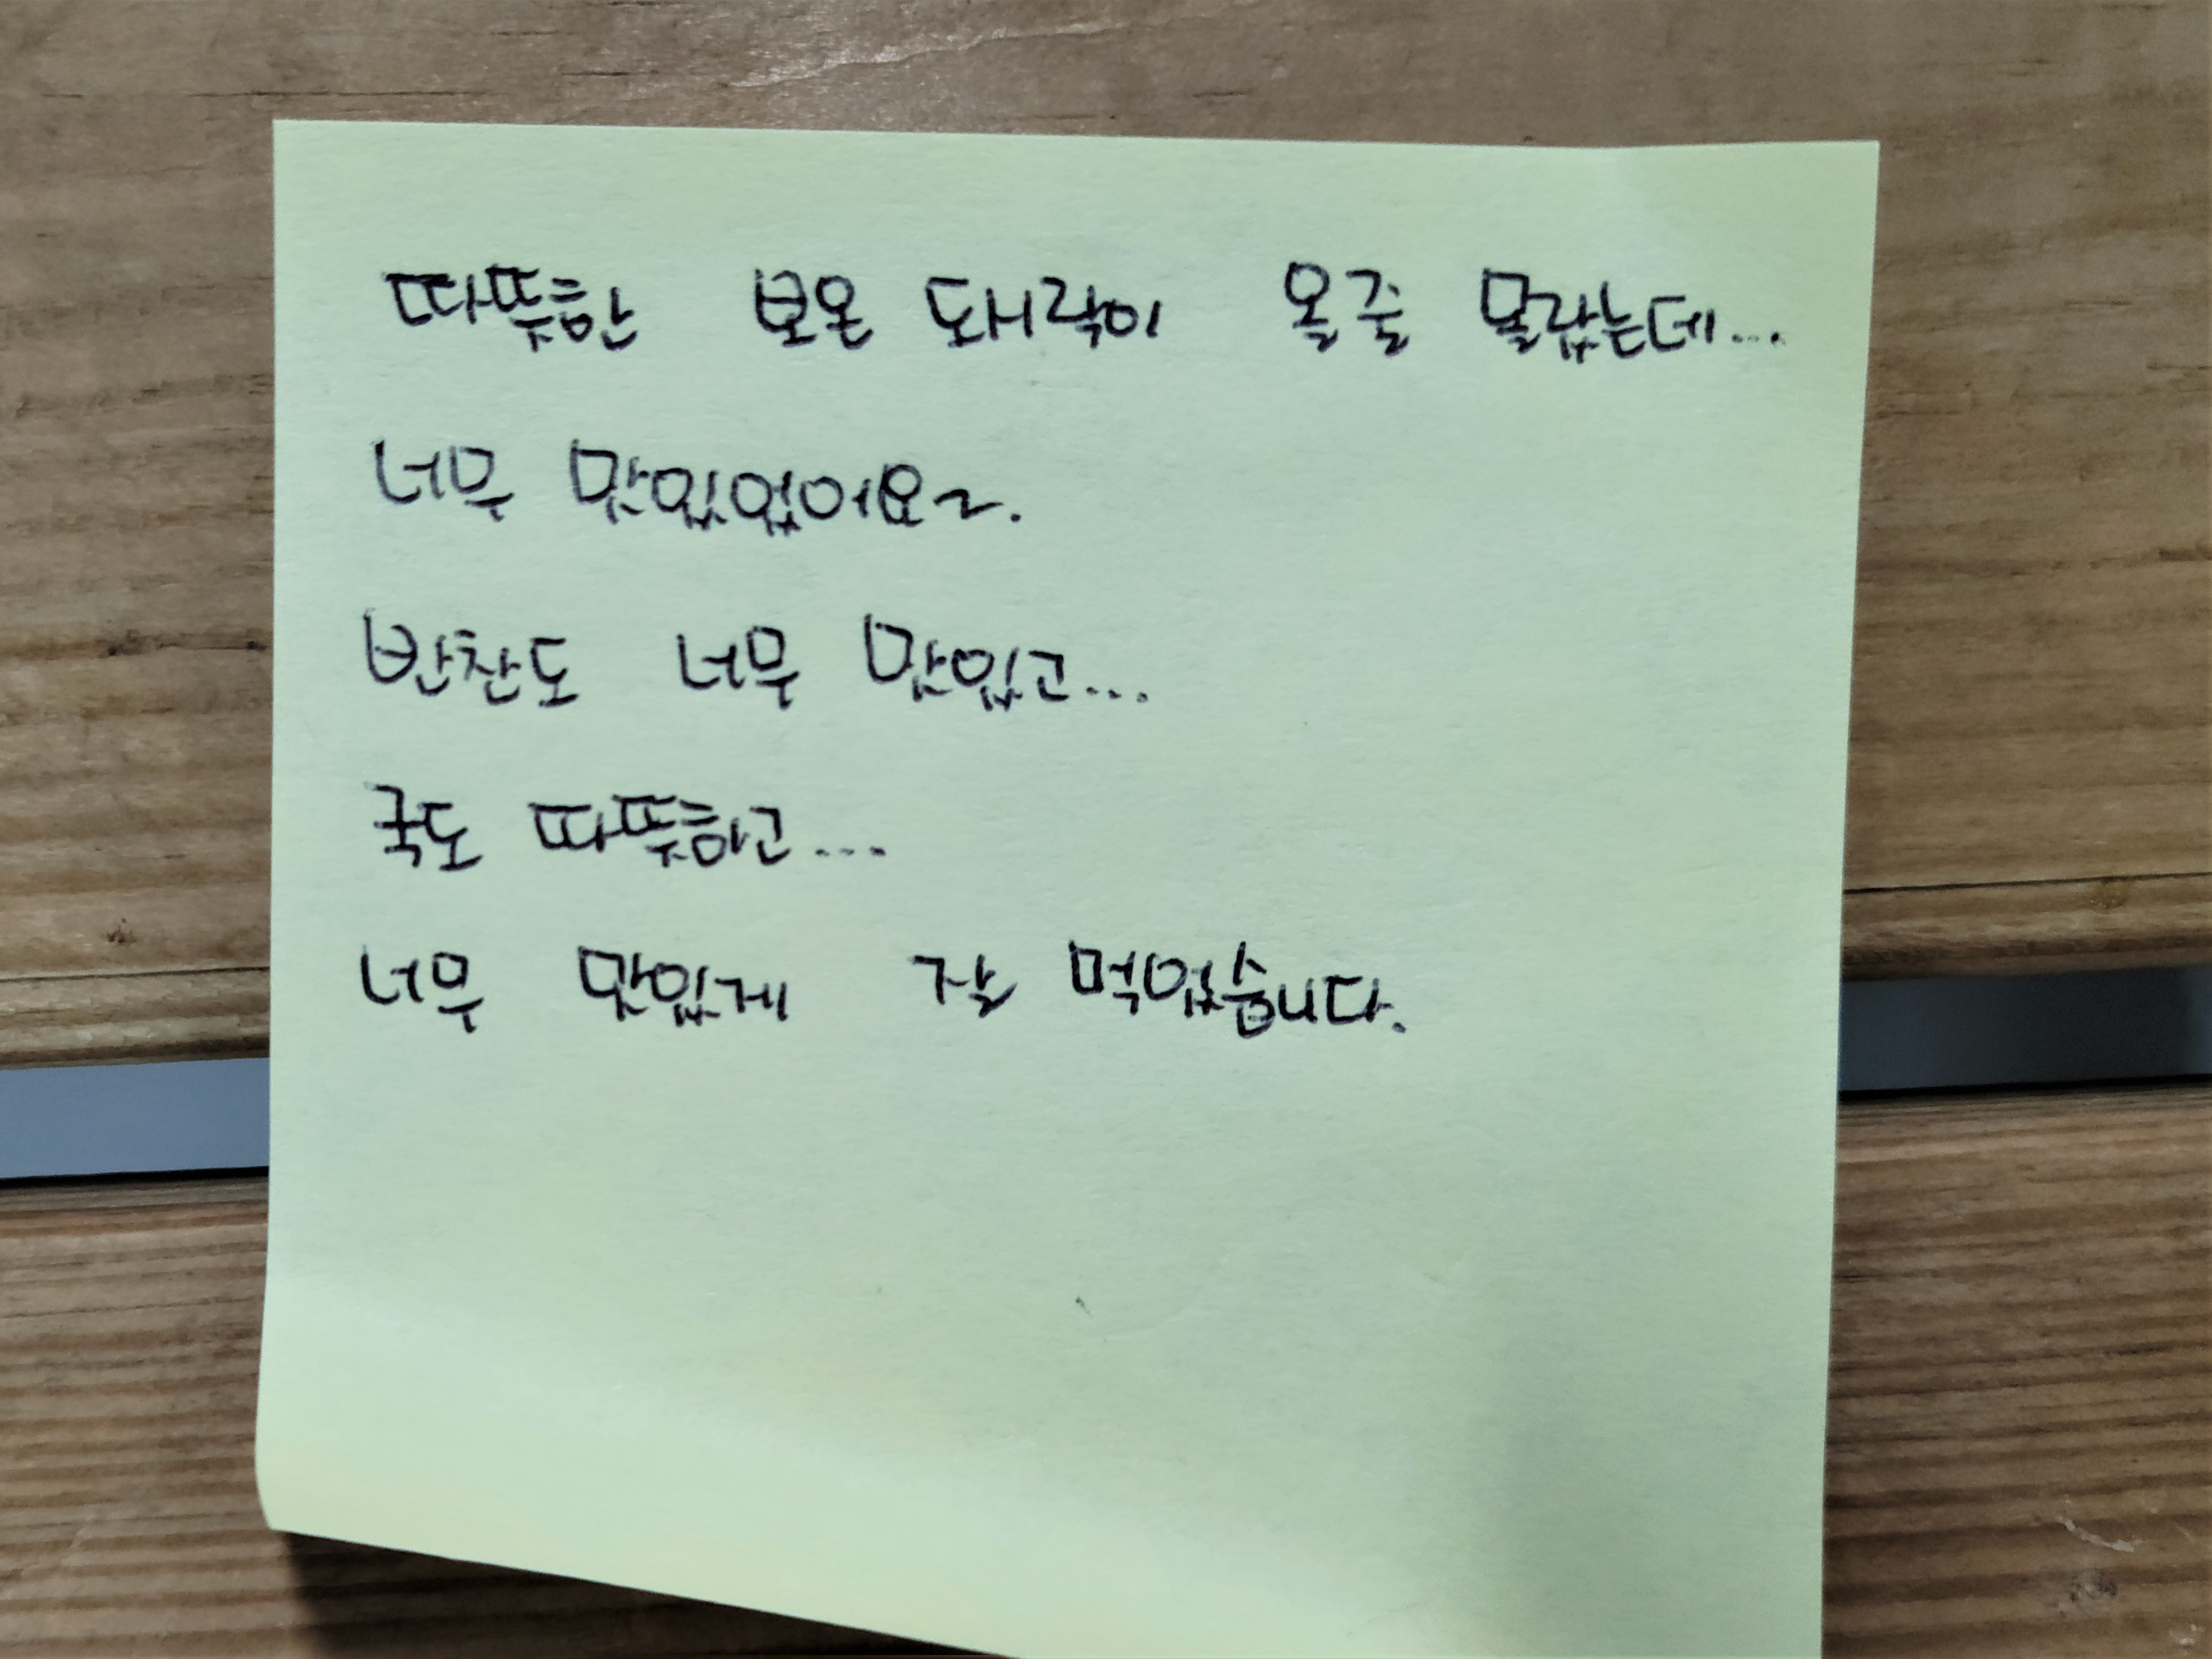 따뜻한 보온 도시락이 올줄 몰랐는데...
너무 맛있었어요~.
반찬도 너무 맛있고...
국도 따뜻하고...
너무 맛있게 잘 먹었습니다.